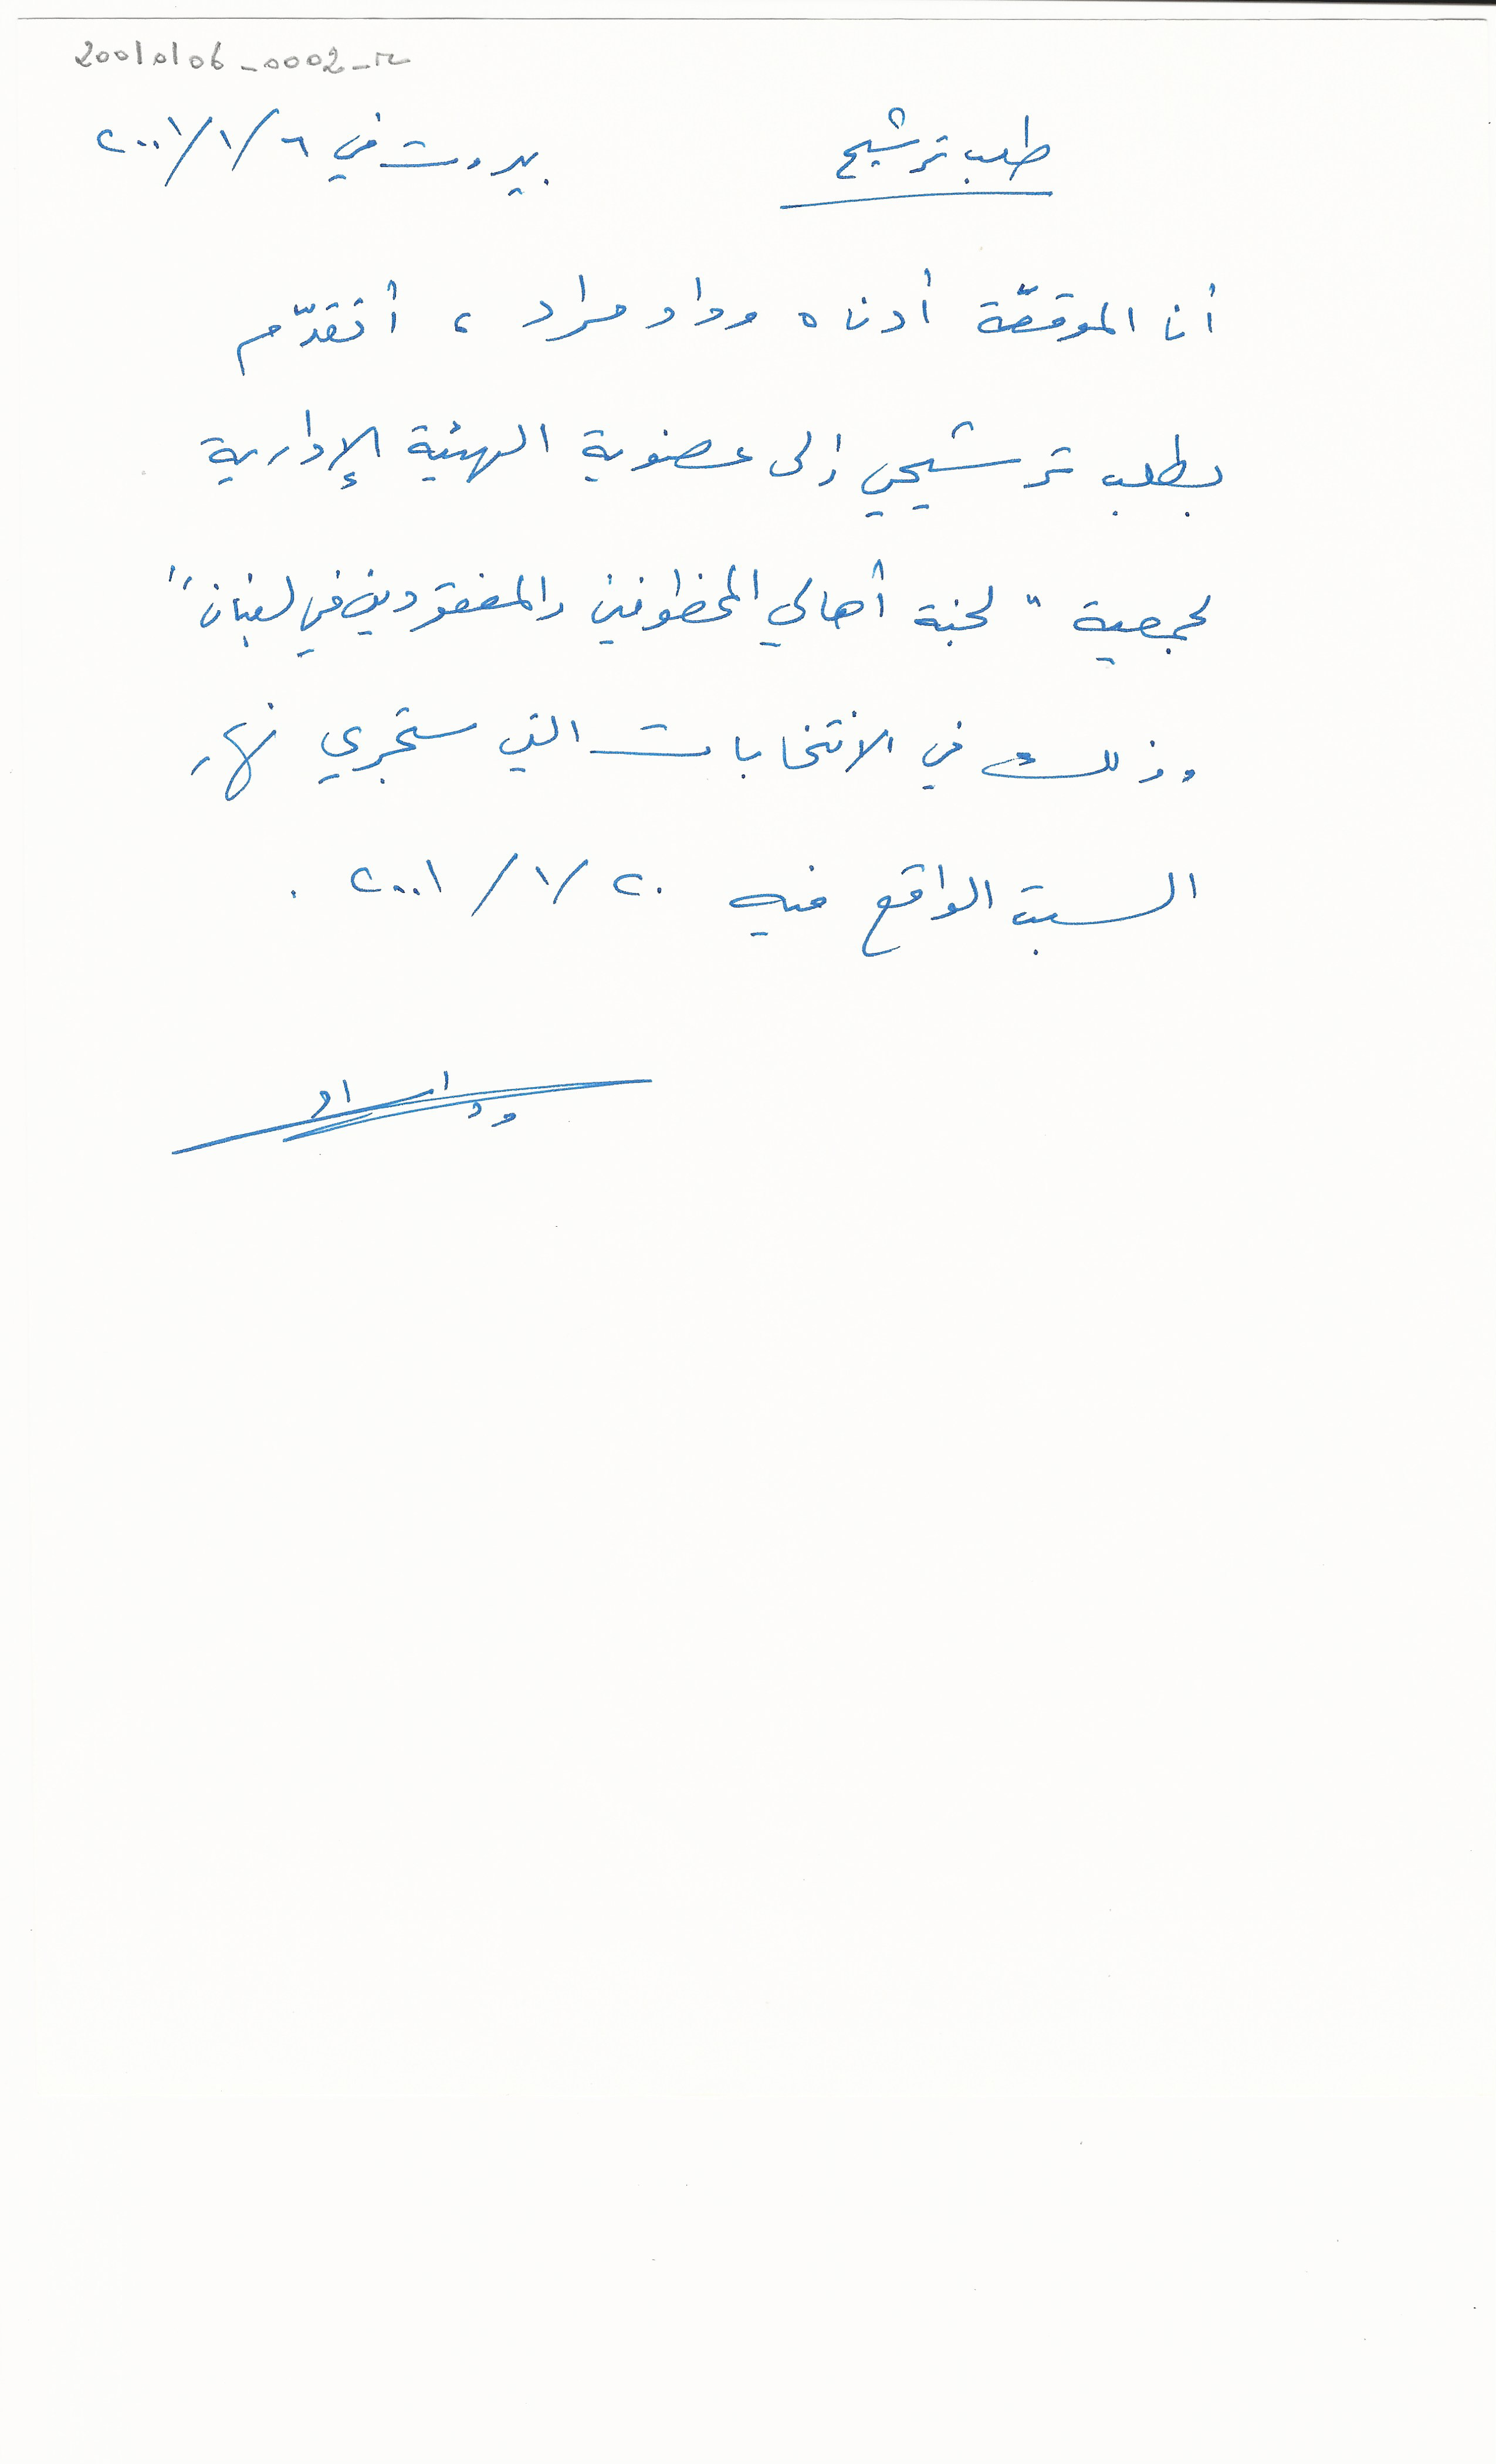 20010106_0002_r
طلب ترشيح
بيروت في ٦/١/٢٠٠١
أنا الموقعّة أدناه وداد مراد ، أتقدّم
بطلب ترشيحي إلى عضوية الهيئة الإدارية
لجمعية "لجنة أهالي المخطوفين والمفقودين في لبنان"
وذلك في الانتخابات التي ستجري نهار
السبت الواقع فيه ٢٠/١/٢٠٠١ .